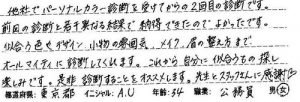 他社でパーソナルカラー診断を受けてからの2回目の診断です。
前回の診断と若干異なる結果で納得できたのでよかったです。
似合う色やデザイン、小物の雰囲気、メイク、眉の整え方まで
オールマイティに診断してくれます。これから自分に似合うもの探し
楽しみです。是非診断することをオススメします。先生とスタッフさんに感謝
都道府県:東京都 イニシャル:A.U 年齢:34 職業:公務員 男・女